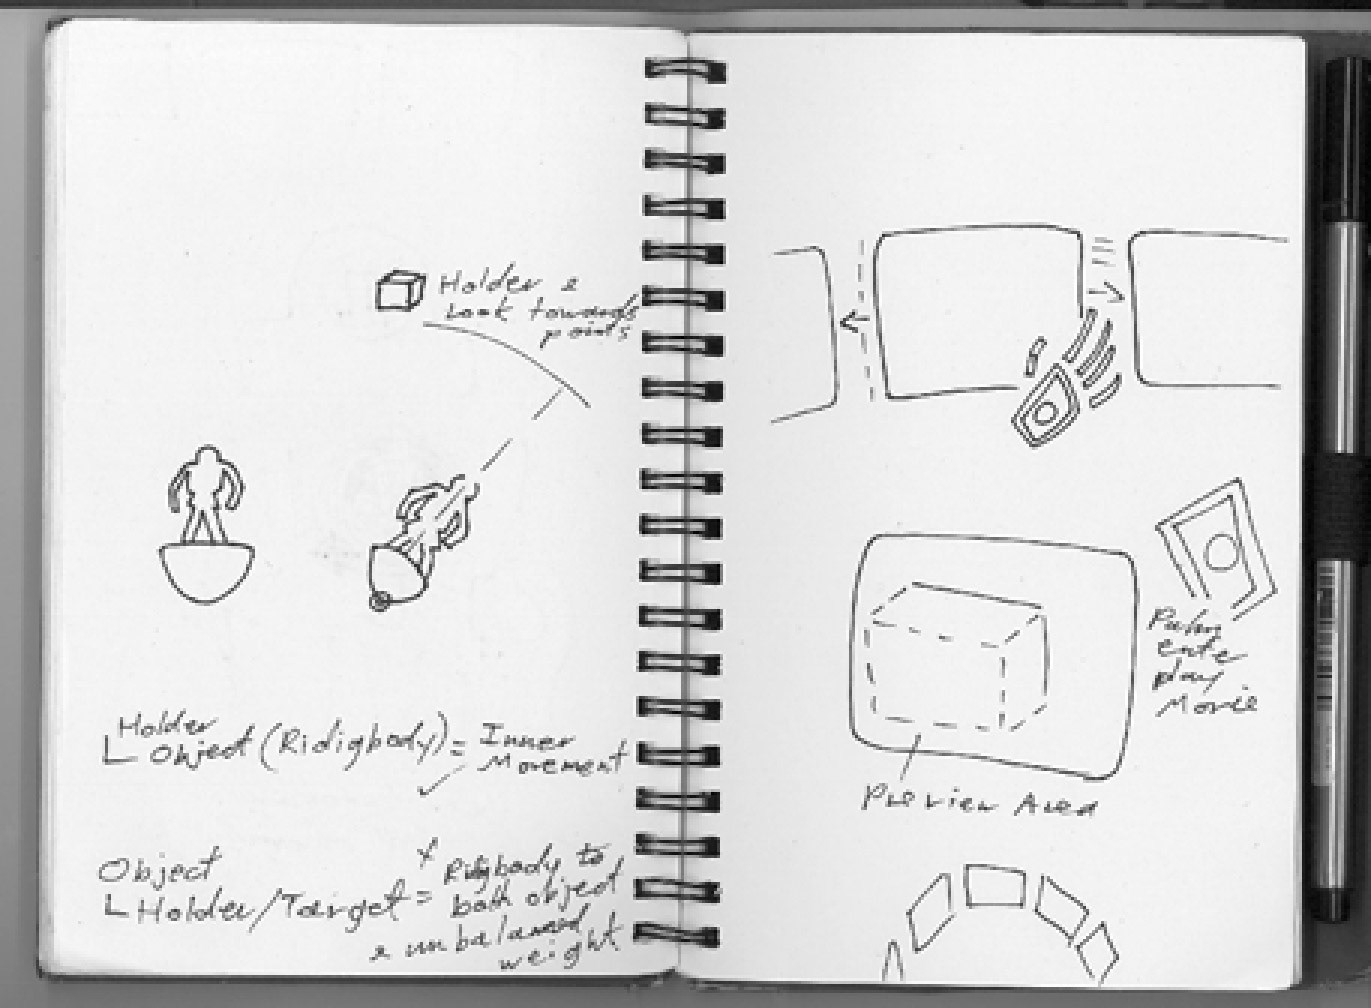 Holder &
Look towards
points
Holder
Object (Ridigbody) = Inner
Movement
Object
Holder/Target = Rigbody to
both object
& unbalanced
weight
Palm
play
Movie
Preview Area